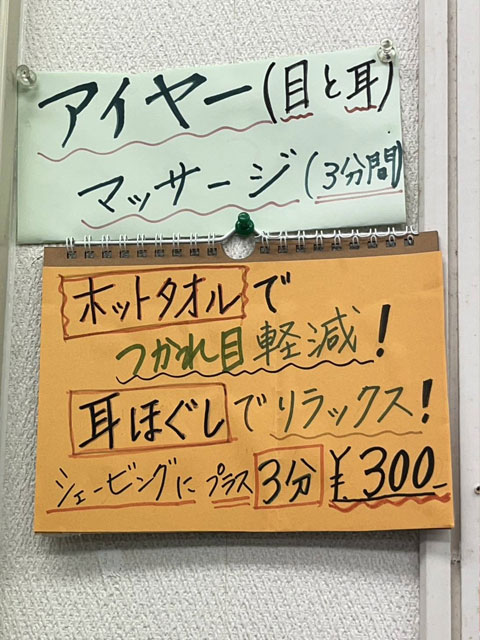 アイヤー(目と耳)
マッサージ(3分間)
ホットタオルで
つかれ目軽減!
耳ほぐしでリラックス!
シェービングにプラス3分¥300-